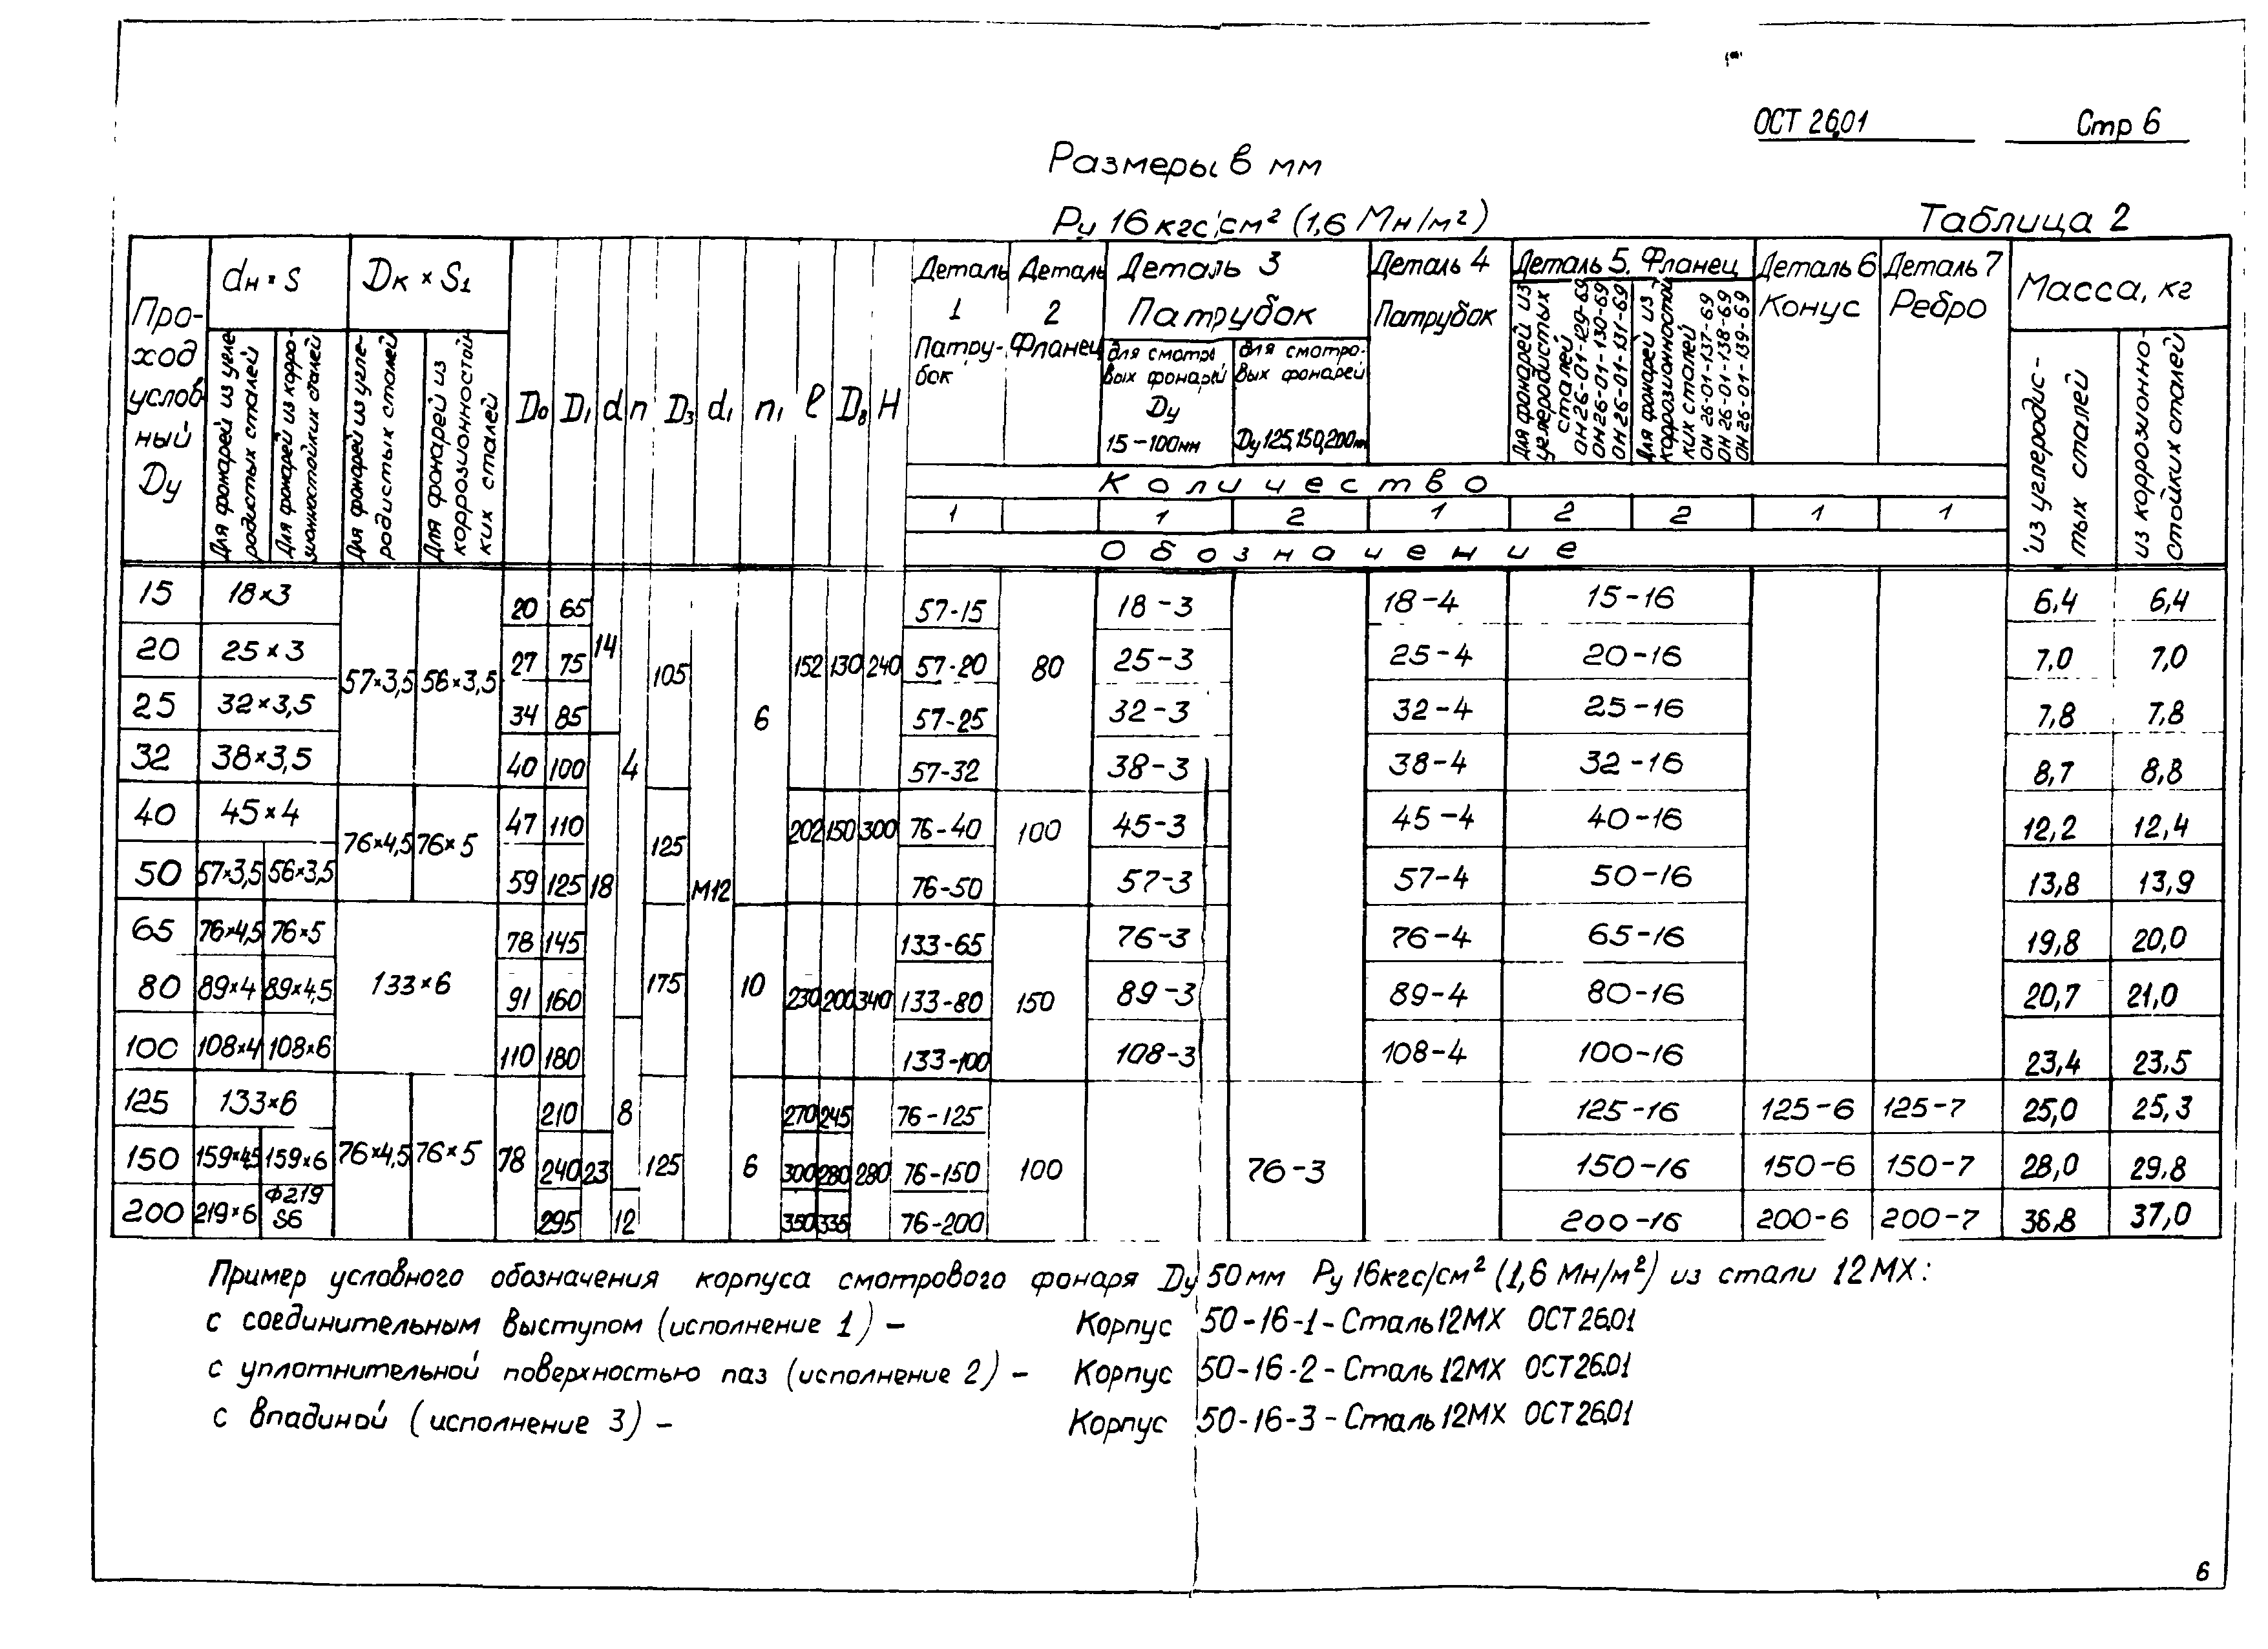 ОСТ 26.01 Стр 6
Размеры в мм
Ру 16 кгс/см² (1,6 Мн/м²) Таблица 2
Проход условный Dу
dн × S
Для фонарей из углеродистых сталей
Для фонарей из коррозионностойких сталей
Dк × S1
Для фонарей из углеродистых сталей
Для фонарей из коррозионностойких сталей
D0 D1 d n D3 d1 n1 l D8 H
Деталь 1 Патрубок
Деталь 2 Фланец
Деталь 3 Патрубок
для смотровых фонарей Dу 15-100мм
для смотровых фонарей Dу 125,150,200мм
Деталь 4 Патрубок
Деталь 5. Фланец
Для фонарей из углеродистых сталей ОН26-01-129-69 ОН26-01-130-69 ОН26-01-131-69
Для фонарей из коррозионностойких сталей ОН 26-01-137-69 ОН 26-01-138-69 ОН 26-01-139-69
Деталь 6 Конус
Деталь 7 Ребро
Масса, кг
из углеродистых сталей
из коррозионностойких сталей
Количество
1 1 2 1 2 2 1 1
Обозначение
15 18×3 20 65 57-15 18-3 18-4 15-16 6,4 6,4
20 25×3 57×3,5 56×3,5 27 75 14 105 152 130 240 57-20 80 25-3 25-4 20-16 7,0 7,0
25 32×3,5 34 85 6 57-25 32-3 32-4 25-16 7,8 7,8
32 38×3,5 40 100 4 57-32 38-3 38-4 32-16 8,7 8,8
40 45×4 76×4,5 76×5 47 110 125 202 150 300 76-40 100 45-3 45-4 40-16 12,2 12,4
50 57×3,5 56×3,5 59 125 18 М12 76-50 57-3 57-4 50-16 13,8 13,9
65 76×4,5 76×5 78 145 133-65 76-3 76-4 65-16 19,8 20,0
80 89×4 89×4,5 133×6 91 160 175 10 230 200 340 133-80 150 89-3 89-4 80-16 20,7 21,0
100 108×4 108×6 110 180 133-100 108-3 108-4 100-16 23,4 23,5
125 133×6 210 8 270 245 76-125 125-16 125-6 125-7 25,0 25,3
150 159×4,5 159×6 76×4,5 76×5 78 240 23 125 6 300 280 280 76-150 100 76-3 150-16 150-6 150-7 28,0 29,8
200 219×6 Ф219 S6 295 12 350 335 76-200 200-16 200-6 200-7 36,8 37,0
Пример условного обозначения корпуса смотрового фонаря Dу 50мм Ру 16кгс/см² (1,6 Мн/м²) из стали 12МХ:
с соединительным выступом (исполнение 1) – Корпус 50-16-1-Сталь12МХ ОСТ26.01
с уплотнительной поверхностью паз (исполнение 2) – Корпус 50-16-2-Сталь12МХ ОСТ26.01
с впадиной (исполнение 3) – Корпус 50-16-3-Сталь12МХ ОСТ26.01
6